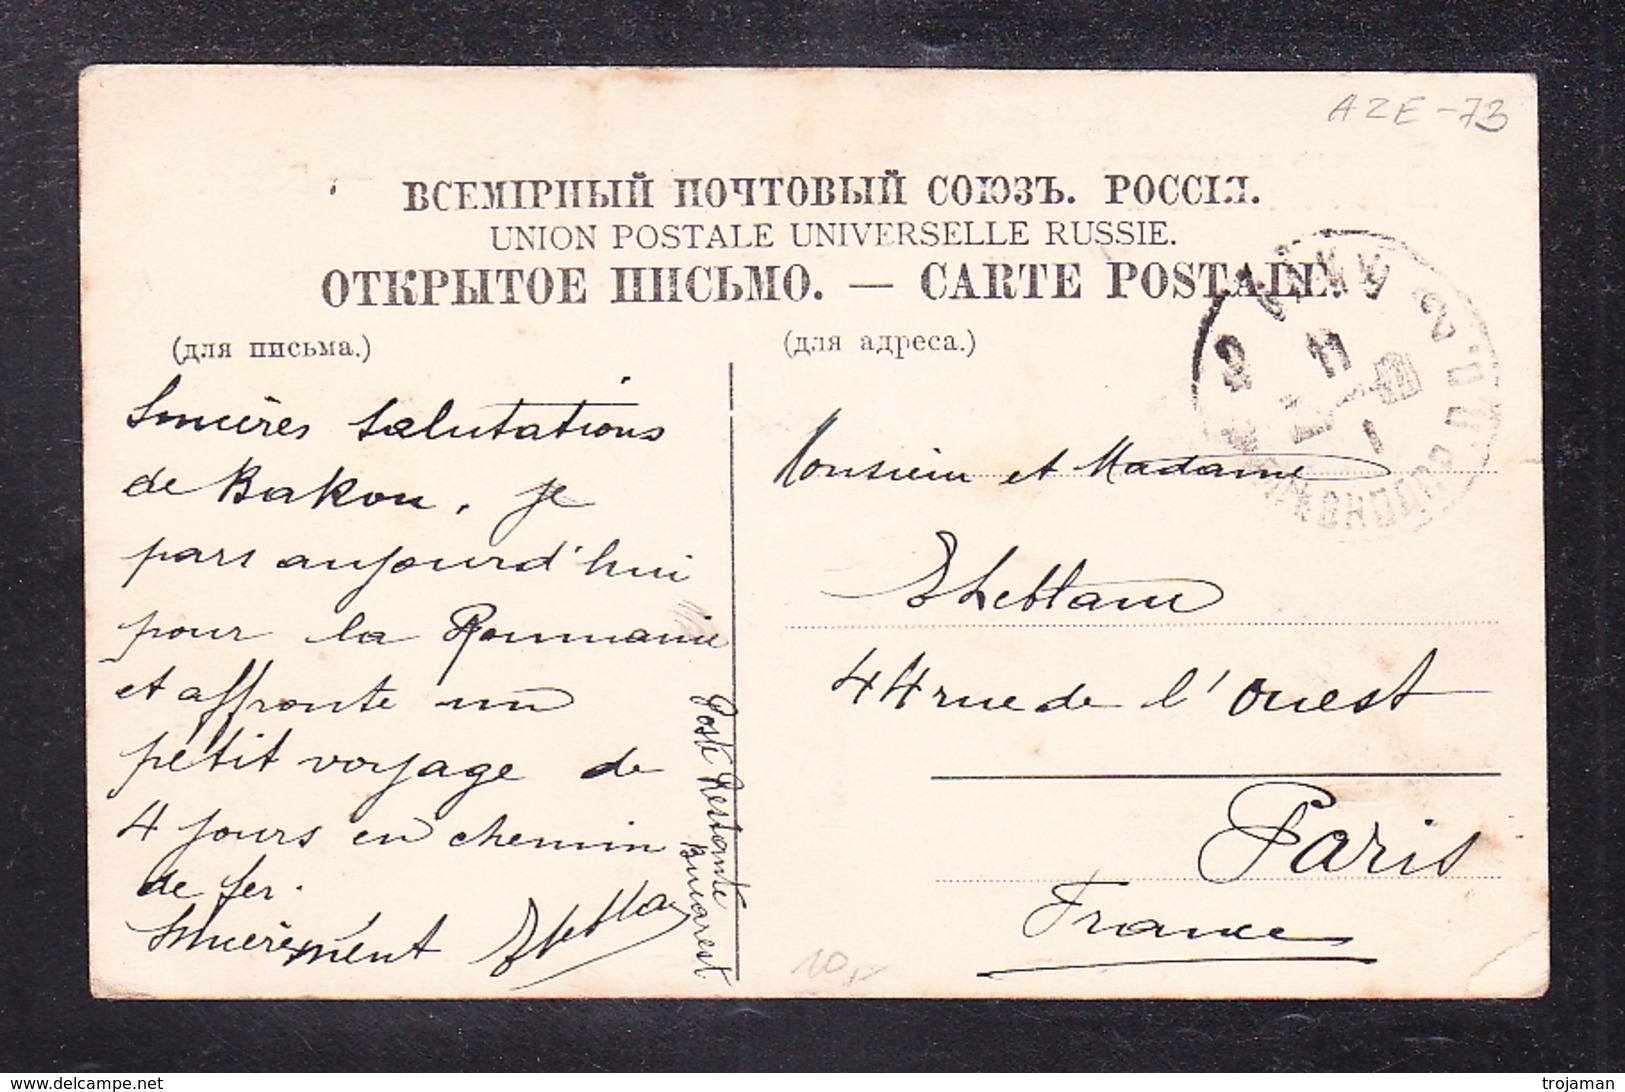 AZE-73
ВСЕМІРНЫЙ ПОЧТОВЫЙ СОЮЗЪ. РОССІЯ.
UNION POSTALE UNIVERSELLE RUSSIE.
ОТКРЫТОЕ ПИСЬМО. — CARTE POSTALE.
(для письма.)
(для адреса.)
Sincères Salutations
de Bakou, je
pars aujourd'hui
pour la Roumanie
et affronte un
petit voyage de
4 jours en chemin
de fer.
Sincèrement
Poste Restante
Bucarest
Monsieur et Madame
44 rue de l'Ouest
Paris
France
10,-
delcampe.net
trojaman